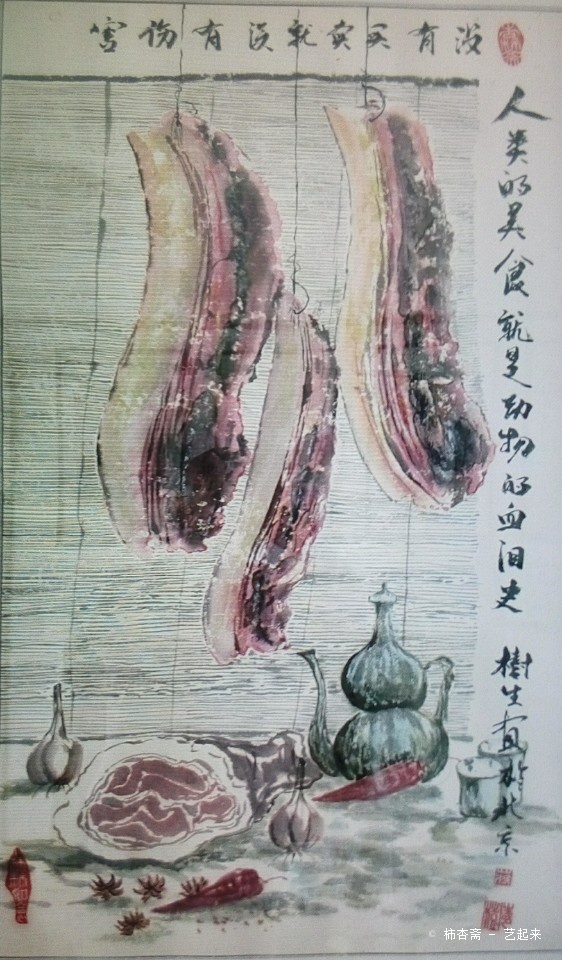 没有买卖就没有伤害
人类的美食就是动物的血泪史
樹生画於北京
© 柿杏斋 - 艺起来